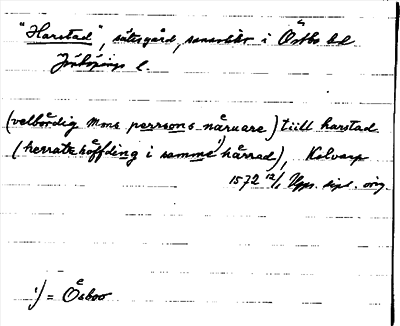 "Harstad", sätesgård, sannolikt i Östbo hd
Jönköpings l.
(velbördig mons perrsons nåruare) tiill harstad
(herratzhöffding i samme ¹) härrad), Kolvarp
1572 12/1 Upps. dipl. orig.
¹) = Åsboo